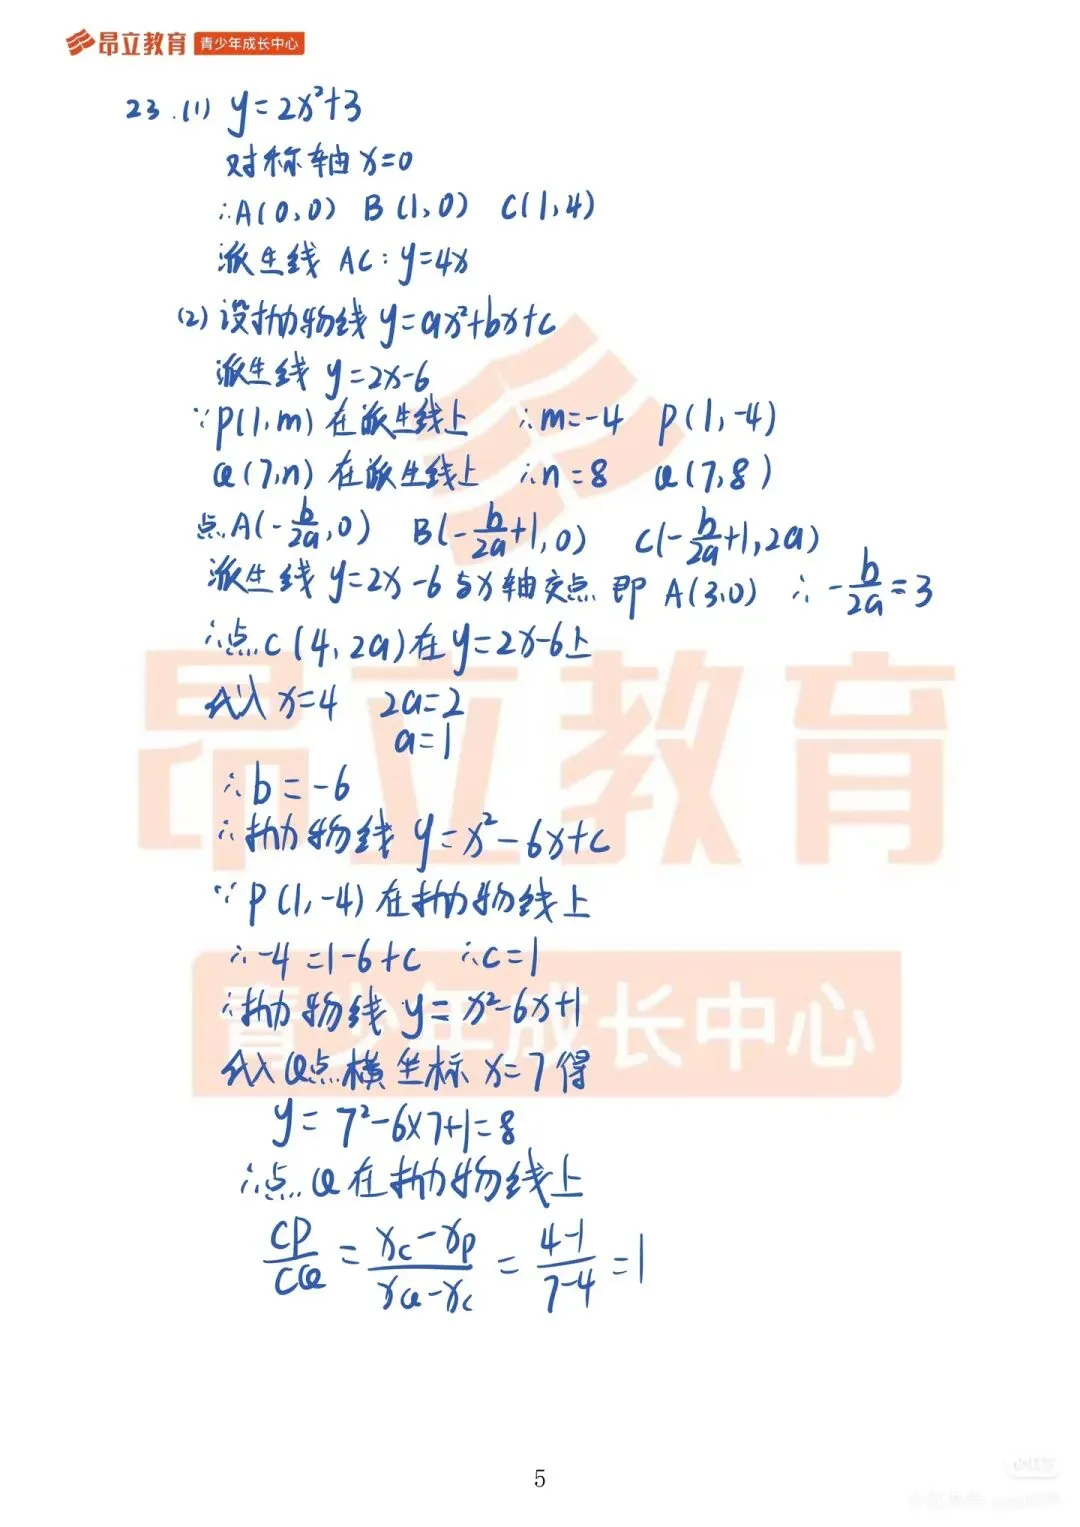 昂立教育 青少年成长中心
23.(1) y=2x²+3
对称轴 x=0
∴A(0,0) B(1,0) C(1,4)
派生线 AC: y=4x
(2) 设抛物线 y=ax²+bx+c
派生线 y=2x-6
∵P(1,m) 在派生线上 ∴m=-4 P(1,-4)
Q(7,n) 在派生线上 ∴n=8 Q(7,8)
点A(-b/2a,0) B(-b/2a+1,0) C(-b/2a+1,2a)
派生线 y=2x-6与x轴交点 即 A(3,0) ∴-b/2a=3
∴点C(4,2a)在y=2x-6上
代入x=4 2a=2
a=1
∴b=-6
∴抛物线 y=x²-6x+c
∵P(1,-4)在抛物线上
∴-4=1-6+c ∴c=1
∴抛物线 y=x²-6x+1
代入Q点横坐标 x=7得
y=7²-6×7+1=8
∴点Q在抛物线上
CP/CQ = (xc-xp)/(xQ-xc) = (4-1)/(7-4) =1
昂立教育
青少年成长中心
5